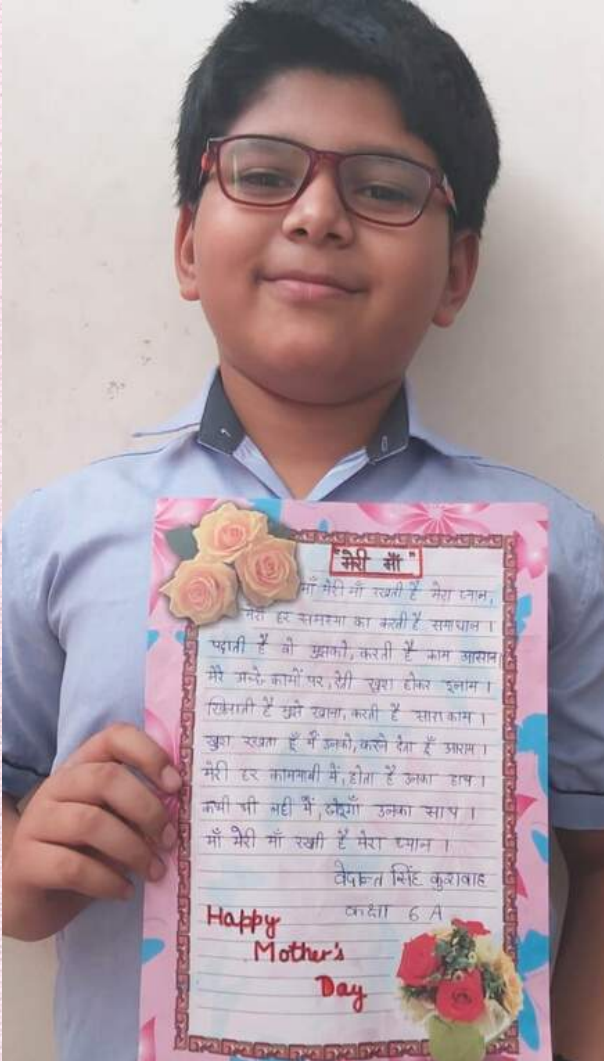 "मेरी माँ"
माँ मेरी माँ रखती है मेरा ध्यान,
मेरी हर समस्या का करती है समाधान ।
पढ़ाती है वो मुझको, करती है काम आसान।
मेरे अच्छे कामों पर, देती खुश होकर इनाम ।
खिलाती है मुझे खाना, करती है सारा काम ।
खुश रखता हूँ मैं उनको, करने देता हूँ आराम ।
मेरी हर कामयाबी में, होता है उनका हाथ ।
कभी भी नही मैं, छोड़ूगाँ उनका साथ ।
माँ मेरी माँ रखती है मेरा ध्यान ।
वेदान्त सिंह कुशवाह
कक्षा 6 A
Happy
Mother's
Day